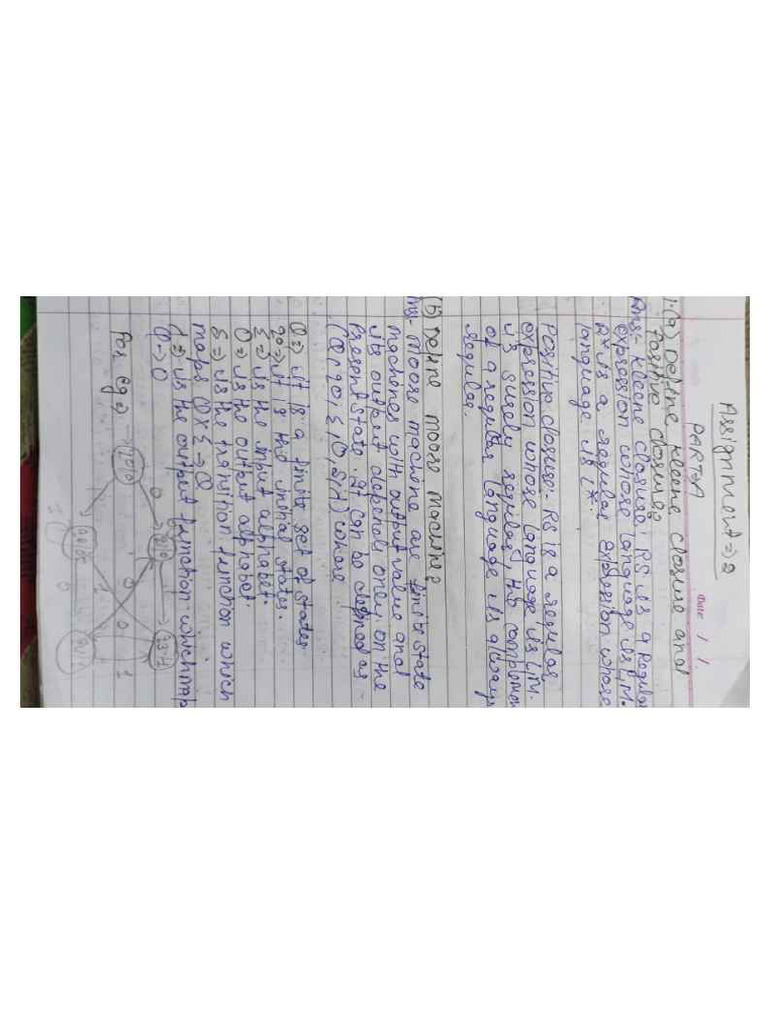 Assignment ⇒ 2
Date / /
PART-A
1.(a) Define kleene closure and
Positive closure?
Ans- kleene closure- RS is a Regular
expression whose language is L,M.
R* is a regular expression whose
language is L*.
Positive closure- RS is a regular
expression whose language is L,M.
is surely regular, the complement
of a regular language is always
regular.
(b) Define moore machine?
Ans- Moore machine are finite state
machines with output value and
its output depends only on the
present state. It can be defined as -
(Q, q0, Σ, O, S, λ) where
Q ⇒ it is a finite set of states.
q0 ⇒ it is the initial states.
Σ ⇒ is the input alphabet.
O ⇒ is the output alphabet.
S ⇒ is the transition function which
maps Q×Σ → Q
λ ⇒ is the output function which map
Q → O
For eg ⇒
0
1
0
1
0
1